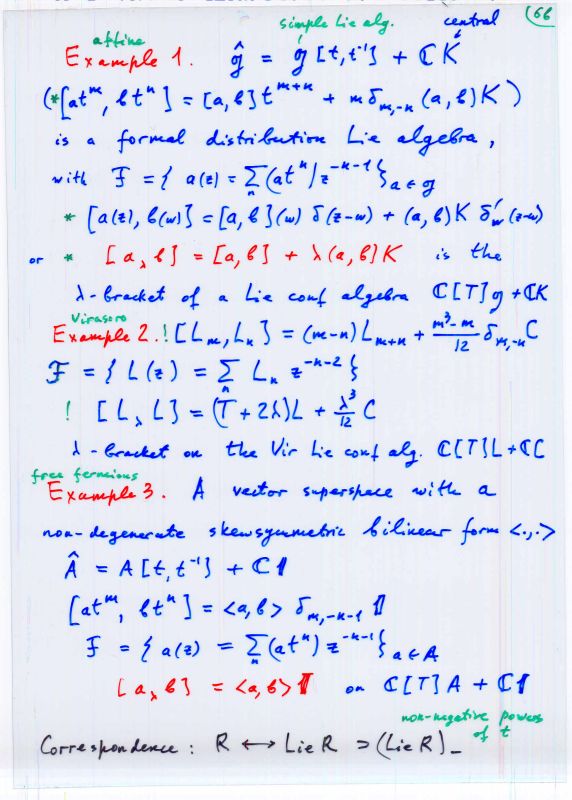 simple Lie alg. central (66
affine
Example 1. ĝ = g [t, t⁻¹] + ℂ K
(*[atᵐ, btⁿ] = [a, b] tᵐ⁺ⁿ + m δₘ,₋ₙ (a, b) K )
is a formal distribution Lie algebra,
with F = { a(z) = ∑ₙ (atⁿ) z⁻ⁿ⁻¹ }ₐ ∈ g
* [a(z), b(w)] = [a, b](w) δ(z-w) + (a, b) K δ'_w (z-w)
or * [a_λ b] = [a, b] + λ(a, b) K is the
λ-bracket of a Lie conf algebra ℂ[T] g + ℂK
Virasoro
Example 2. ! [Lₘ, Lₙ] = (m-n) Lₘ₊ₙ + (m³-m)/12 δₘ,₋ₙ C
F = { L(z) = ∑ₙ Lₙ z⁻ⁿ⁻² }
! [L_λ L] = (T + 2λ) L + λ³/12 C
λ-bracket on the Vir Lie conf alg. ℂ[T] L + ℂC
free fermions
Example 3. A vector superspace with a
non-degenerate skewsymmetric bilinear form <.,.>
Â = A [t, t⁻¹] + ℂ 𝟙
[atᵐ, btⁿ] = <a, b> δₘ,₋ₙ₋₁ 𝟙
F = { a(z) = ∑ₙ (atⁿ) z⁻ⁿ⁻¹ }ₐ ∈ A
[a_λ b] = <a, b> 𝟙 on ℂ[T] A + ℂ 𝟙
non-negative powers
of t
Correspondence : R ⟷ Lie R ⊃ (Lie R)₋